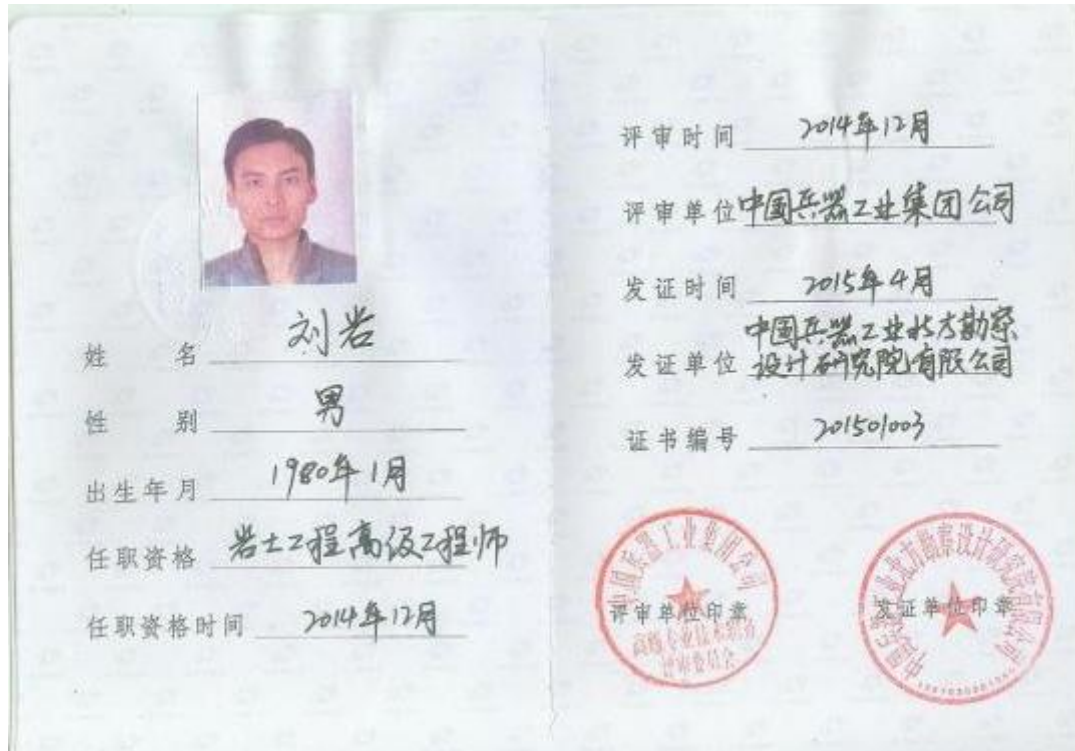 姓 名 刘岩
性 别 男
出生年月 1980年1月
任职资格 岩土工程高级工程师
任职资格时间 2014年12月
评审时间 2014年12月
评审单位 中国兵器工业集团公司
发证时间 2015年4月
发证单位 中国兵器工业北方勘察
设计研究院有限公司
证书编号 201501003
中国兵器工业集团公司
评审单位印章
高级专业技术职务
评审委员会
中国兵器工业北方勘察设计研究院有限公司
发证单位印章